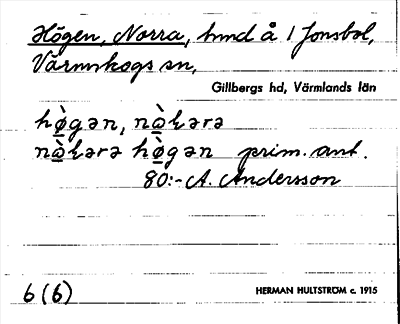 Högen, Norra, hmd å 1 Jonsbol,
Värmskogs sn,
Gillbergs hd, Värmlands län
hø̀gən, nɷ̀ꞎərə
nɷ̀ꞎərə hø̀gən prim. ant.
80:- A. Andersson
6 (6)
HERMAN HULTSTRÖM c. 1915